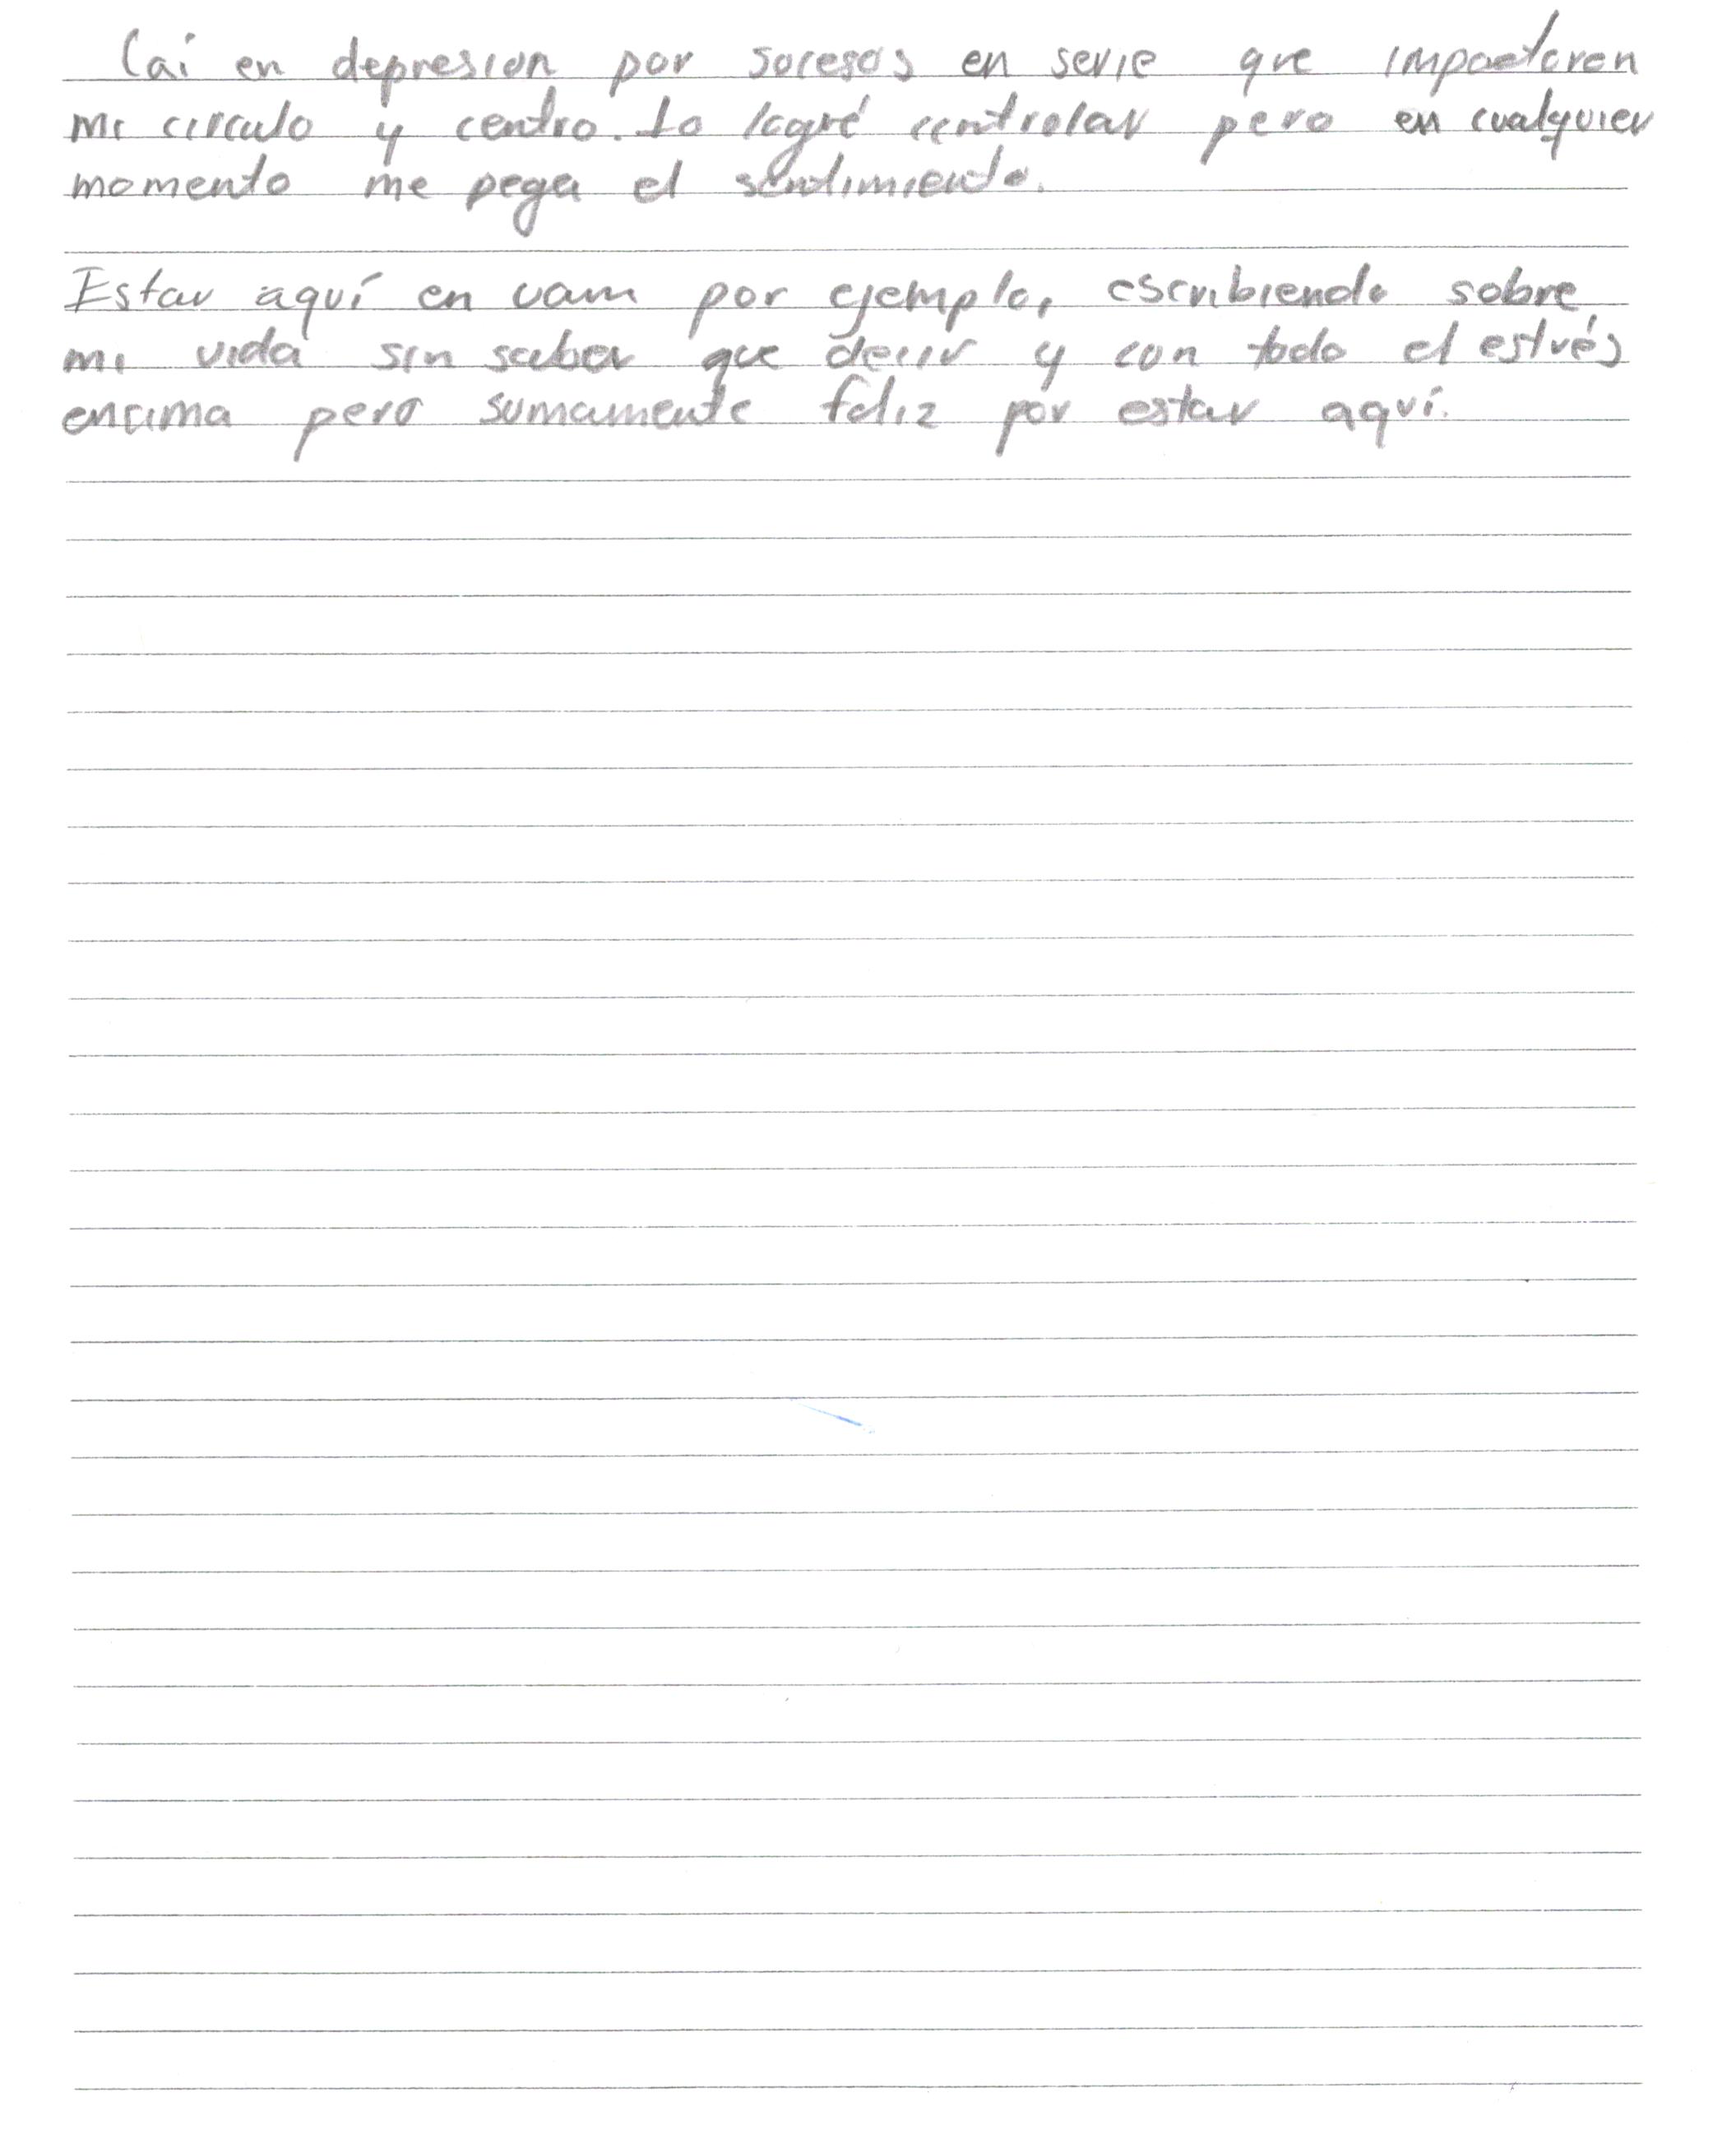 Cai en depresion por sucesos en serie que impactaron
mi circulo y centro. Lo logré controlar pero en cualquier
momento me pega el sentimiento.
Estar aquí en uam por ejemplo, escribiendo sobre
mi vida sin saber que decir y con todo el estrés
encima pero sumamente feliz por estar aquí.